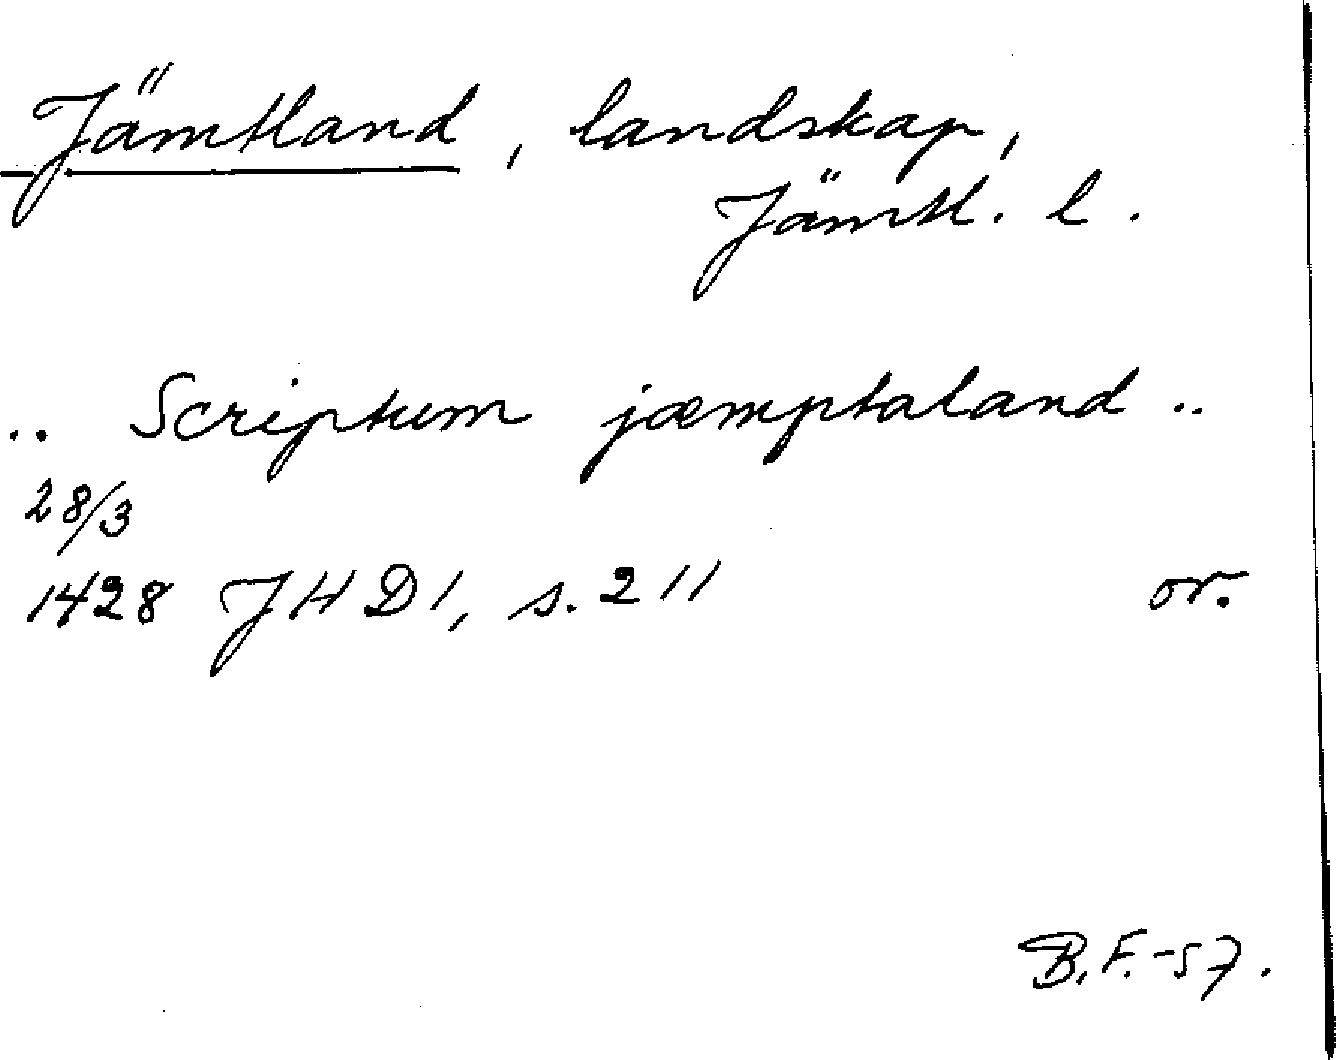 Jämtland, landskap,
Jämtl. l.
.. Scriptum jæmptaland ..
28/3
1428 JHD 1, s. 211 or.
B.F.-57.